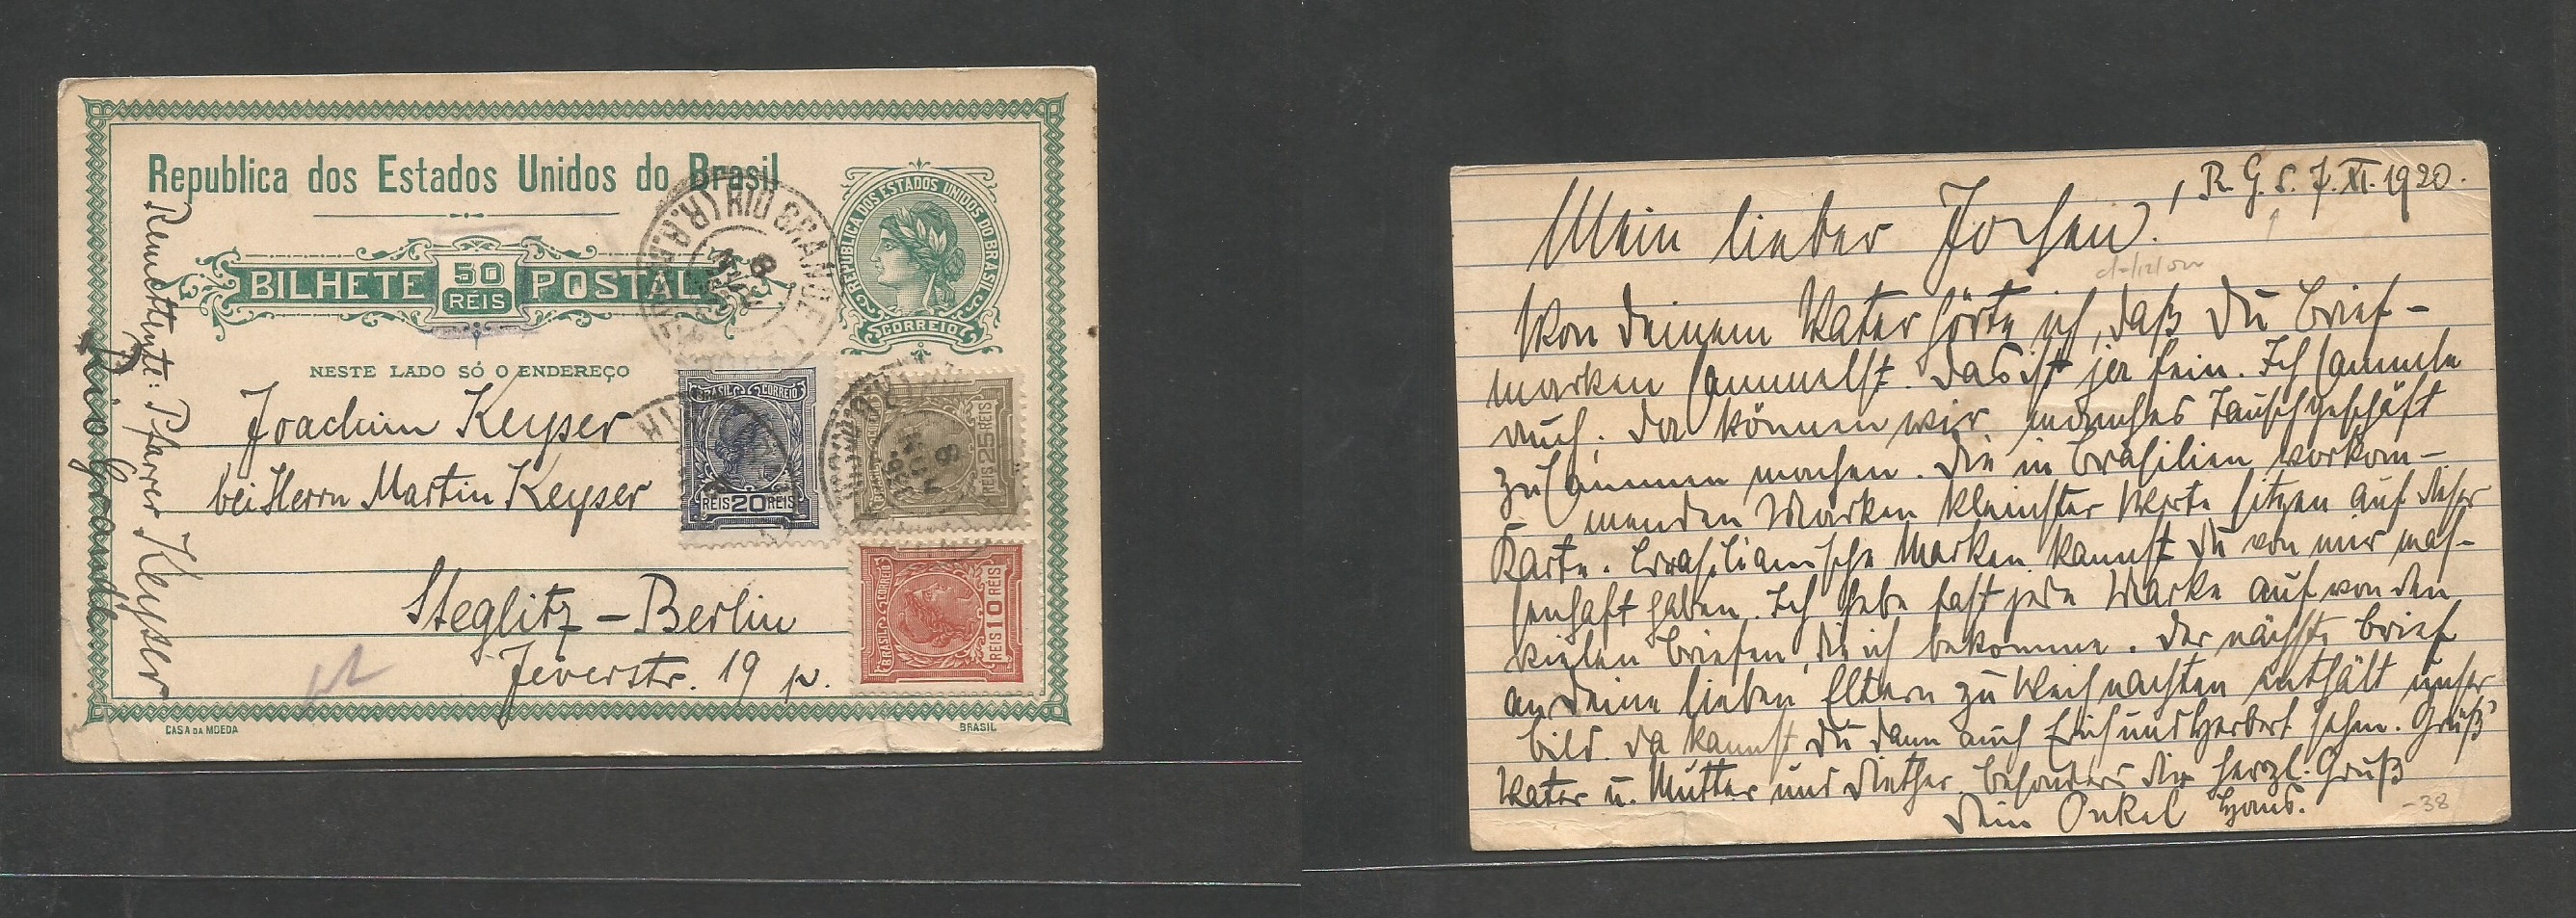 Republica dos Estados Unidos do Brasil
BILHETE 50 RÉIS POSTAL
REPUBLICA DOS ESTADOS UNIDOS DO BRASIL
CORREIO
NESTE LADO SÓ O ENDEREÇO
Joachim Keyser
bei Herrn Martin Keyser
Steglitz – Berlin
Jeverstr. 19 p.
Remettente: Pfarrer Keyser
Rio Grande
BRASIL CORREIO
REIS 20 REIS
REIS 25 REIS
BRASIL CORREIO
REIS 10 REIS
RIO GRANDE
8
CASA DA MOEDA
BRASIL
R. G. S. 7. XI. 1920.
Mein lieber Jochen!
Von deinem Vater hörte ich, daß Du Brief-
marken sammelst. Das ist ja fein. Ich sammle
auch. Da können wir manches Tauschgeschäft
zusammen machen. Die in Brasilien vorkom-
menden Marken kleinster Werte sitzen auf dieser
Karte. Brasilianische Marken kannst Du von mir mas-
senhaft haben. Ich hebe fast jede Marke auf von den
vielen Briefen, die ich bekomme. Der nächste Brief
an Deine lieben Eltern zu Weihnachten enthält unser
Bild. Da kannst Du dann auch Erich und Herbert sehen. Grüß
Vater u. Mutter und Diether, besonders Dir herzl. Gruß
Dein Onkel Hans.
-38